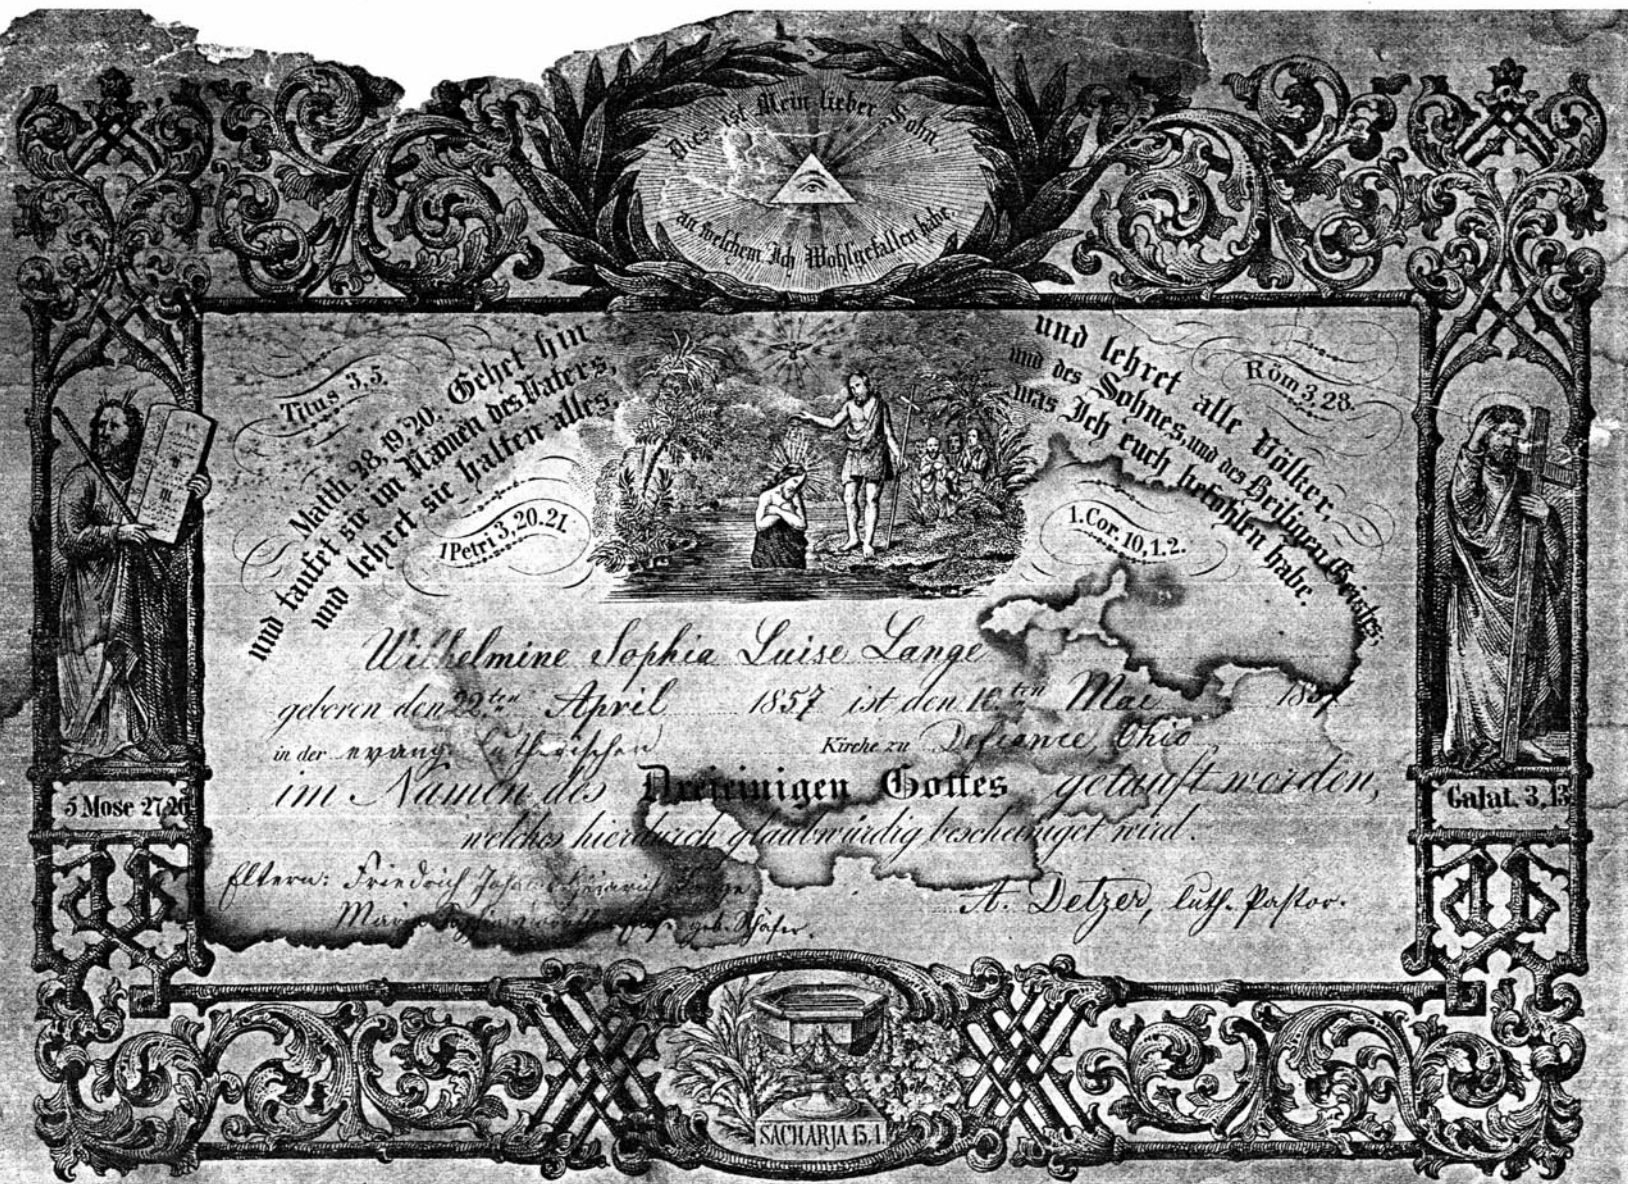 Dies ist Mein lieber Sohn,
an welchem Ich Wohlgefallen habe.
Titus 3,5.
Röm 3,28.
Matth. 28, 19.20. Gehet hin und lehret alle Völker,
und taufet sie im Namen des Vaters, und des Sohnes, und des Heiligen Geistes;
und lehret sie halten alles, was Ich euch befohlen habe.
1 Petri 3,20.21.
1. Cor. 10,1.2.
Wilhelmine Sophia Luise Lange
geboren den 22ten April 1857 ist den 10ten Mai 1857
in der evang. lutherischen Kirche zu Defiance, Ohio,
im Namen des Dreieinigen Gottes getauft worden,
welches hierdurch glaubwürdig bescheiniget wird.
5 Mose 27,26
Galat. 3,13
Eltern: Friedrich Johann Heinrich Lange
geb. Schäfer.
A. Detzer, luth. Pastor.
SACHARJA 13,1.